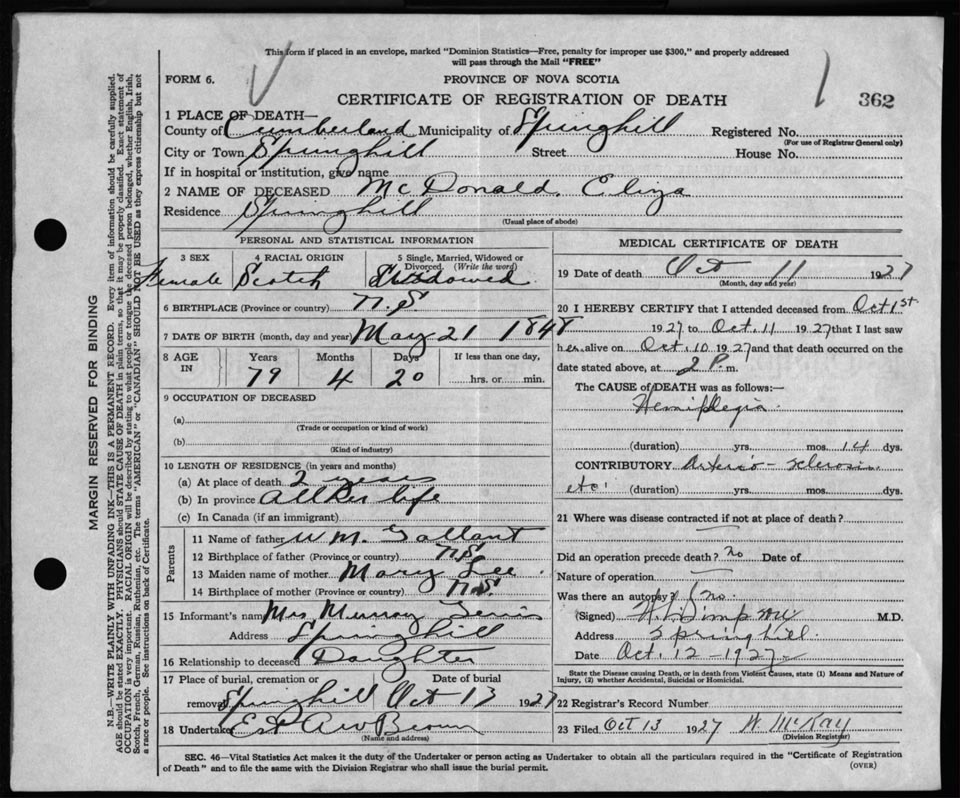 This form if placed in an envelope, marked "Dominion Statistics—Free, penalty for improper use $300," and properly addressed
will pass through the Mail "FREE"
FORM 6.
PROVINCE OF NOVA SCOTIA
CERTIFICATE OF REGISTRATION OF DEATH
362
1 PLACE OF DEATH—
County of Cumberland Municipality of Springhill Registered No.
(For use of Registrar General only)
City or Town Springhill Street House No.
If in hospital or institution, give name
2 NAME OF DECEASED McDonald. Eliza
Residence Springhill
(Usual place of abode)
PERSONAL AND STATISTICAL INFORMATION
3 SEX 4 RACIAL ORIGIN 5 Single, Married, Widowed or
Divorced. (Write the word)
Female Scotch Widowed
6 BIRTHPLACE (Province or country) N.S.
7 DATE OF BIRTH (month, day and year) May 21 1848
8 AGE IN Years Months Days If less than one day,
79 4 20 hrs. or min.
9 OCCUPATION OF DECEASED
(a)
(Trade or occupation or kind of work)
(b)
(Kind of industry)
10 LENGTH OF RESIDENCE (in years and months)
(a) At place of death 2 years
(b) In province all her life
(c) In Canada (if an immigrant)
Parents
11 Name of father WM. Gallant
12 Birthplace of father (Province or country) N.S.
13 Maiden name of mother Mary Lee
14 Birthplace of mother (Province or country) N.S.
15 Informant's name Mrs Murray
Address Springhill
16 Relationship to deceased Daughter
17 Place of burial, cremation or Date of burial
removal Springhill Oct 13 1927
18 Undertaker Brown
(Name and address)
MEDICAL CERTIFICATE OF DEATH
19 Date of death Oct 11 1927
(Month, day and year)
20 I HEREBY CERTIFY that I attended deceased from Oct 1st
1927 to Oct. 11 1927 that I last saw
her alive on Oct. 10 1927 and that death occurred on the
date stated above, at 2 P. m.
The CAUSE of DEATH was as follows:—
Hemiplegia
(duration) yrs. mos. 14 dys.
CONTRIBUTORY Arterio-sclerosis
etc. (duration) yrs. mos. dys.
21 Where was disease contracted if not at place of death?
Did an operation precede death? no Date of
Nature of operation
Was there an autopsy? no.
(Signed) Simpson M.D.
Address Springhill.
Date Oct. 12 - 1927
State the Disease causing Death, or in death from Violent Causes, state (1) Means and Nature of
Injury, (2) whether Accidental, Suicidal or Homicidal.
22 Registrar's Record Number
23 Filed Oct 13 1927 McKay
(Division Registrar)
SEC. 46—Vital Statistics Act makes it the duty of the Undertaker or person acting as Undertaker to obtain all the particulars required in the "Certificate of Registration
of Death" and to file the same with the Division Registrar who shall issue the burial permit. (OVER)
MARGIN RESERVED FOR BINDING
N.B.—WRITE PLAINLY WITH UNFADING INK—THIS IS A PERMANENT RECORD. Every item of information should be carefully supplied.
AGE should be stated EXACTLY. PHYSICIANS should STATE CAUSE OF DEATH in plain terms, so that it may be properly classified. Exact statement of
OCCUPATION is very important. RACIAL ORIGIN will be described by stating to what people or tongue the deceased person belonged, whether English, Irish,
Scotch, French, German, Russian, Ruthenian, etc. The terms "AMERICAN" or "CANADIAN" SHOULD NOT BE USED as they express citizenship but not
a race or people. See instructions on back of Certificate.